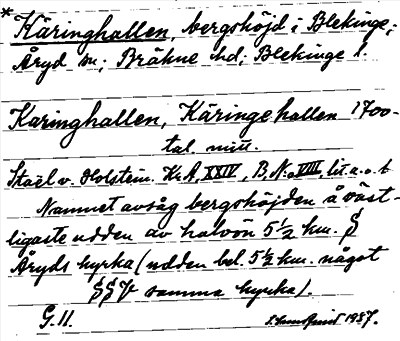 * Käringhallen, bergshöjd i Blekinge;
Åryd sn; Bräkne hd; Blekinge l.
Karinghallen, Käringehallen 1700-
tal. min.
Staël v. Holstein. K.A. XXIV, B.N:o VIII, lit. a. o. b
Namnet avsåg bergshöjden å väst-
ligaste udden av halvön 5½ km. S
Åryds kyrka (udden bel. 5½ km. något
SSV samma kyrka).
G.11.
1957.